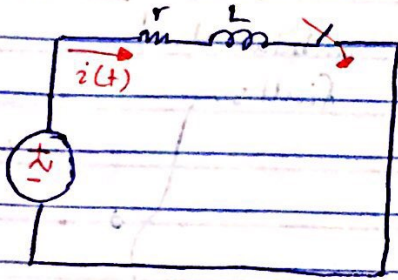 r L
i(t)
+
~
-